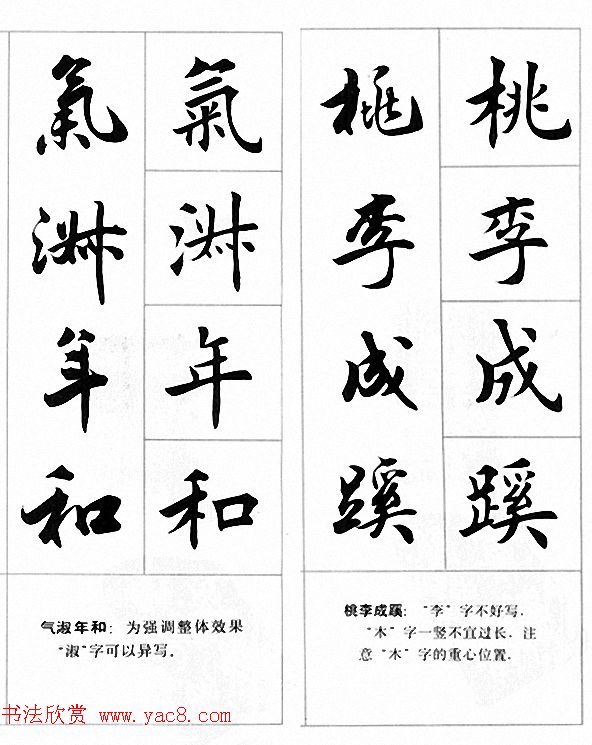 桃李成蹊
桃李成蹊
氣淑年和
氣淑年和
桃李成蹊：“李”字不好写．
“木”字一竖不宜过长．注
意“木”字的重心位置．
气淑年和：为强调整体效果
“淑”字可以异写．
书法欣赏 www.yac8.com